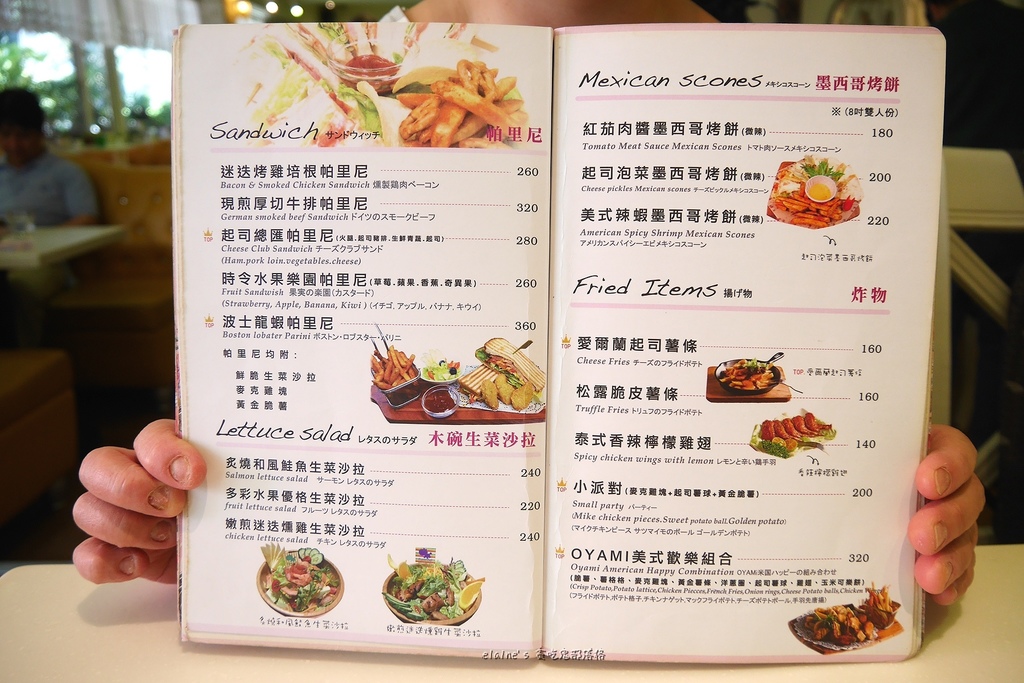 Sandwich サンドウィッチ 帕里尼
迷迭烤雞培根帕里尼 260
Bacon & Smoked Chicken Sandwich 燻製鶏肉ベーコン
現煎厚切牛排帕里尼 320
German smoked beef Sandwich ドイツのスモークビーフ
TOP 起司總匯帕里尼(火腿.起司豬排.生鮮青蔬.起司) 280
Cheese Club Sandwich チーズクラブサンド
(Ham.pork loin.vegetables.cheese)
時令水果樂園帕里尼(草莓.蘋果.香蕉.奇異果) 260
Fruit Sandwish 果実の楽園(カスタード)
(Strawberry, Apple, Banana, Kiwi ) (イチゴ, アップル, バナナ, キウイ)
TOP 波士龍蝦帕里尼 360
Boston lobater Parini ボストン・ロブスター・パリニ
帕里尼均附:
鮮脆生菜沙拉
麥克雞塊
黃金脆薯
Lettuce salad レタスのサラダ 木碗生菜沙拉
炙燒和風鮭魚生菜沙拉 240
Salmon lettuce salad サーモンレタスのサラダ
多彩水果優格生菜沙拉 220
fruit lettuce salad フルーツレタスのサラダ
嫩煎迷迭燻雞生菜沙拉 240
chicken lettuce salad チキンレタスのサラダ
炙燒和風鮭魚生菜沙拉
嫩煎迷迭燻雞生菜沙拉
Mexican scones メキシコスコーン 墨西哥烤餅
※(8吋雙人份)
紅茄肉醬墨西哥烤餅(微辣) 180
Tomato Meat Sauce Mexican Scones トマト肉ソースメキシコスコーン
起司泡菜墨西哥烤餅(微辣) 200
Cheese pickles Mexican scones チーズピックルメキシコスコーン
美式辣蝦墨西哥烤餅(微辣) 220
American Spicy Shrimp Mexican Scones
アメリカンスパイシーエビメキシコスコーン
起司泡菜墨西哥烤餅
Fried Items 揚げ物 炸物
TOP 愛爾蘭起司薯條 160
Cheese Fries チーズのフライドポテト
TOP. 愛爾蘭起司薯條
松露脆皮薯條 160
Truffle Fries トリュフのフライドポテト
泰式香辣檸檬雞翅 140
Spicy chicken wings with lemon レモンと辛い鶏手羽
香辣檸檬雞翅
TOP 小派對(麥克雞塊+起司薯球+黃金脆薯) 200
Small party パーティー
(Mike chicken pieces.Sweet potato ball.Golden potato)
(マイクチキンピース サツマイモのボール ゴールデンポテト)
TOP OYAMI美式歡樂組合 320
Oyami American Happy Combination OYAMI米国ハッピーの組み合わせ
(脆薯、薯格格、麥克雞塊、黃金薯條、洋蔥圈、起司薯球、雞翅、玉米可樂餅)
(Crisp Potato,Potato lattice,Chicken Piecces,French Fries,Onion rings,Cheese Potato balls,Chicken Wings
(フライドポテト,ポテト格子,チキンナゲット,マックフライポテト,チーズポテトボール,手羽先唐揚)